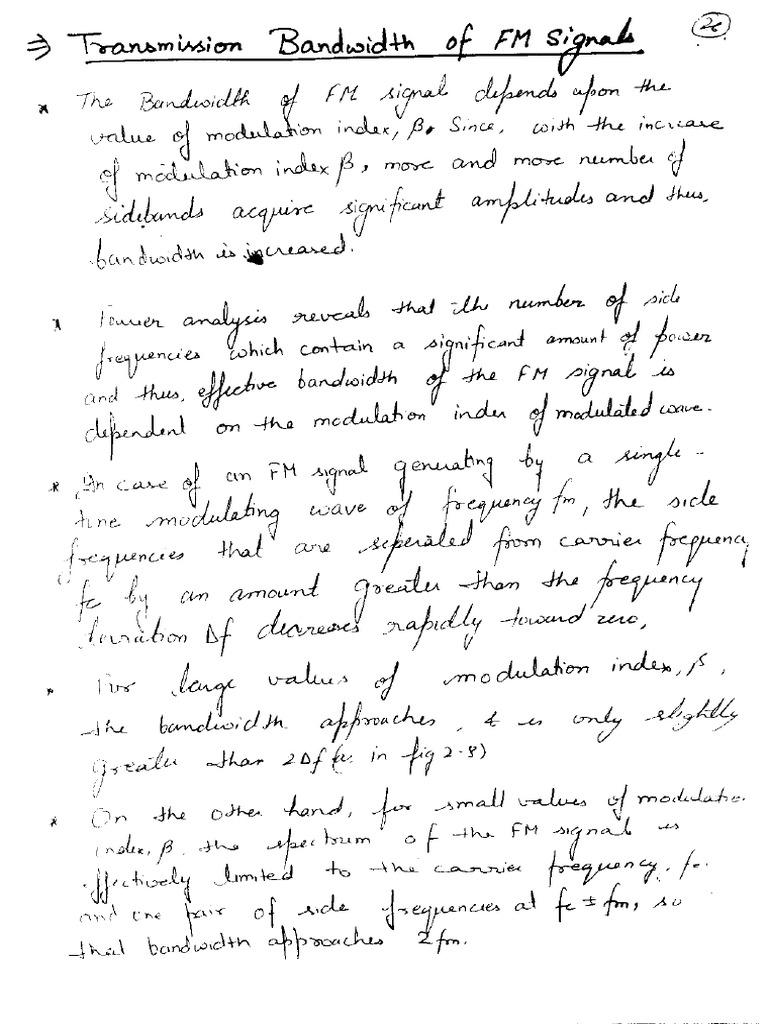 ⇒ Transmission Bandwidth of FM Signals
* The Bandwidth of FM signal depends upon the
value of modulation index, β. Since, with the increase
of modulation index β, more and more number of
sidebands acquire significant amplitudes and thus,
bandwidth is increased.
* Fourier analysis reveals that the number of side
frequencies which contain a significant amount of power
and thus, effective bandwidth of the FM signal is
dependent on the modulation index of modulated wave.
* In case of an FM signal generating by a single-
tone modulating wave of frequency fm, the side
frequencies that are seperated from carrier frequency
fc by an amount greater than the frequency
deviation Δf decreases rapidly toward zero,
* For large values of modulation index, β,
the bandwidth approaches, & is only slightly
greater than 2Δf in fig 2.8)
* On the other hand, for small values of modulation
index, β, the spectrum of the FM signal is
effectively limited to the carrier frequency, fc
and one pair of side frequencies at fc ± fm, so
that bandwidth approaches 2fm.